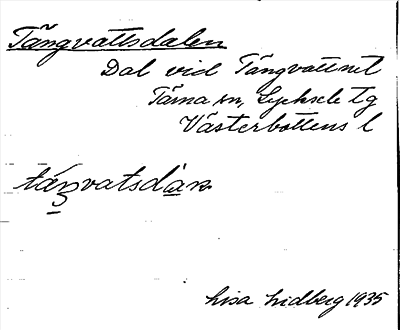 Tängvattsdalen
Dal vid Tängvattnet
Tärna sn, Lycksele lg
Västerbottens l
táŋvatsdàn
Lisa Lidberg 1935